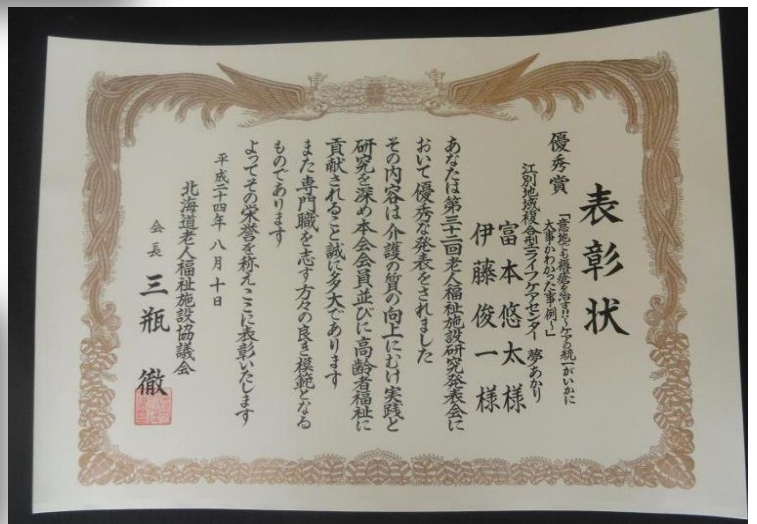 表彰状
優秀賞
「意地でも褥瘡を治す!!～ケアの統一がいかに
大事かわかった事例～」
江別地域複合型ライフケアセンター 夢あかり
富本悠太様
伊藤俊一様
あなたは第三十二回老人福祉施設研究発表会に
おいて優秀な発表をされました
その内容は介護の質の向上にむけ実践と
研究を深め本会会員並びに高齢者福祉に
貢献されること誠に多大であります
また専門職を志す方々の良き模範となる
ものであります
よってその栄誉を称えここに表彰いたします
平成二十四年八月十日
北海道老人福祉施設協議会
会長 三瓶徹